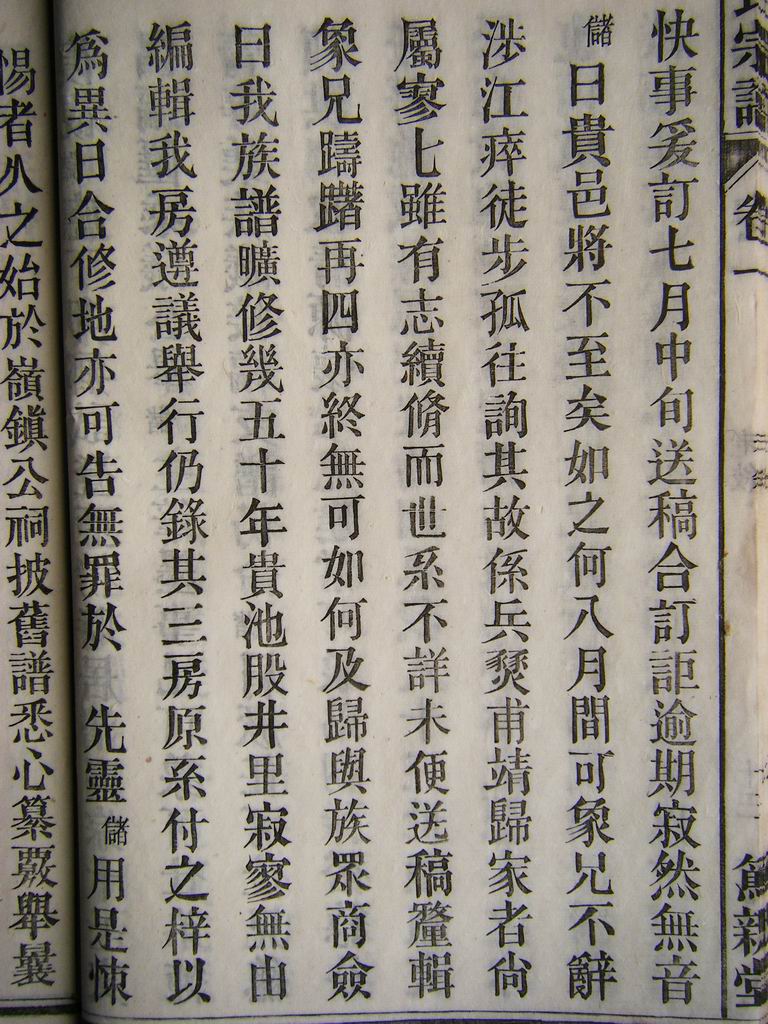 宗譜 卷一 篤親堂
快事爰訂七月中旬送稿合訂詎逾期寂然無音
儲曰貴邑將不至矣如之何八月間可象兄不辭
涉江瘁徒步孤往詢其故係兵燹甫靖歸家者尚
屬寥七雖有志續脩而世系不詳未便送稿釐輯
象兄躊躇再四亦終無可如何及歸與族眾商僉
曰我族譜曠修幾五十年貴池股井里寂寥無由
編輯我房遵議舉行仍錄其三房原系付之梓以
為異日合修地亦可告無罪於 先靈儲用是悚
惕者久之始於嶺鎮公祠披舊譜悉心纂覈舉曩